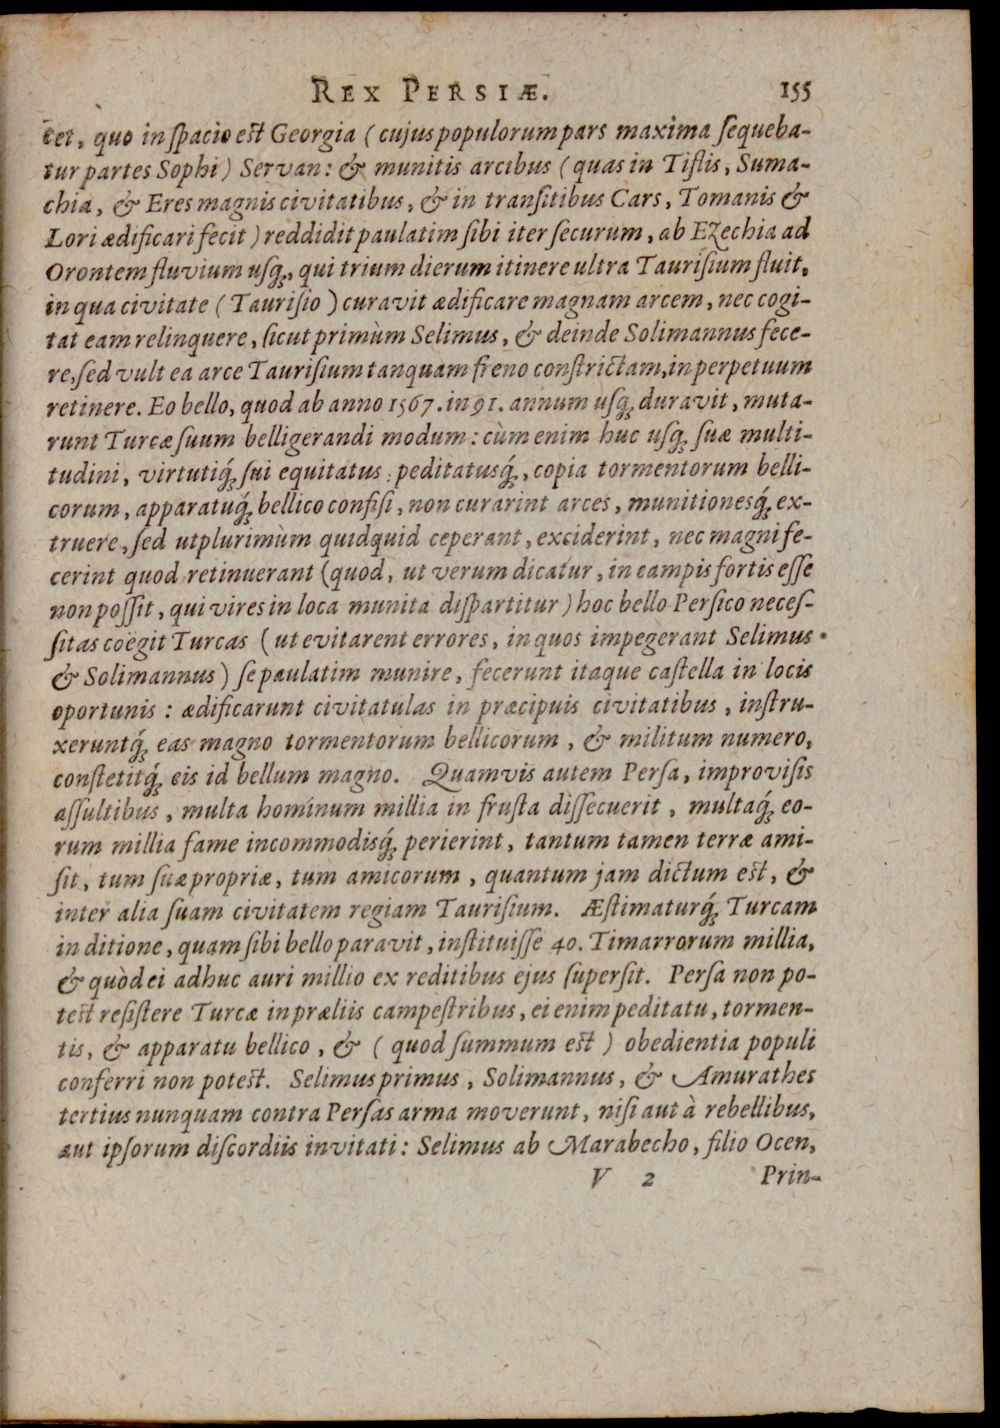 REX PERSIÆ. 155
cet, quo in ſpacio est Georgia (cujus populorum pars maxima ſequeba-
tur partes Sophi) Servan: & munitis arcibus (quas in Tiflis, Suma-
chia, & Eres magnis civitatibus, & in tranſitibus Cars, Tomanis &
Lori ædificari fecit) reddidit paulatim ſibi iter ſecurum, ab Ezechia ad
Orontem fluvium uſq;, qui trium dierum itinere ultra Tauriſium fluit,
in qua civitate (Tauriſio) curavit ædificare magnam arcem, nec cogi-
tat eam relinquere, ſicut primùm Selimus, & deinde Solimannus fece-
re, ſed vult ea arce Tauriſium tanquam freno conſtrictam, in perpetuum
retinere. Eo bello, quod ab anno 1567. in 91. annum uſq; duravit, muta-
runt Turcæ ſuum belligerandi modum: cùm enim huc uſq; ſuæ multi-
tudini, virtutiq́; ſui equitatus peditatusq́;, copia tormentorum belli-
corum, apparatuq́; bellico confiſi, non curarint arces, munitionesq́; ex-
truere, ſed utplurimùm quidquid ceperant, exciderint, nec magni fe-
cerint quod retinuerant (quod, ut verum dicatur, in campis fortis eſſe
non poſſit, qui vires in loca munita diſpartitur) hoc bello Perſico neceſ-
ſitas coëgit Turcas (ut evitarent errores, in quos impegerant Selimus
& Solimannus) ſe paulatim munire, fecerunt itaque caſtella in locis
oportunis: ædificarunt civitatulas in præcipuis civitatibus, inſtru-
xeruntq́; eas magno tormentorum bellicorum, & militum numero,
conſtetitq́; eis id bellum magno. Quamvis autem Perſa, improviſis
aſſultibus, multa hominum millia in fruſta diſſecuerit, multaq́; eo-
rum millia fame incommodisq́; perierint, tantum tamen terræ ami-
ſit, tum ſuæ propriæ, tum amicorum, quantum jam dictum est, &
inter alia ſuam civitatem regiam Tauriſium. Æſtimaturq́; Turcam
in ditione, quam ſibi bello paravit, inſtituiſſe 40. Timarrorum millia,
& quòd ei adhuc auri millio ex reditibus ejus ſuperſit. Perſa non po-
test reſiſtere Turcæ in præliis campeſtribus, ei enim peditatu, tormen-
tis, & apparatu bellico, & (quod ſummum est) obedientia populi
conferri non potest. Selimus primus, Solimannus, & Amurathes
tertius nunquam contra Perſas arma moverunt, niſi aut à rebellibus,
aut ipſorum diſcordiis invitati: Selimus ab Marabecho, filio Ocen,
V 2 Prin-